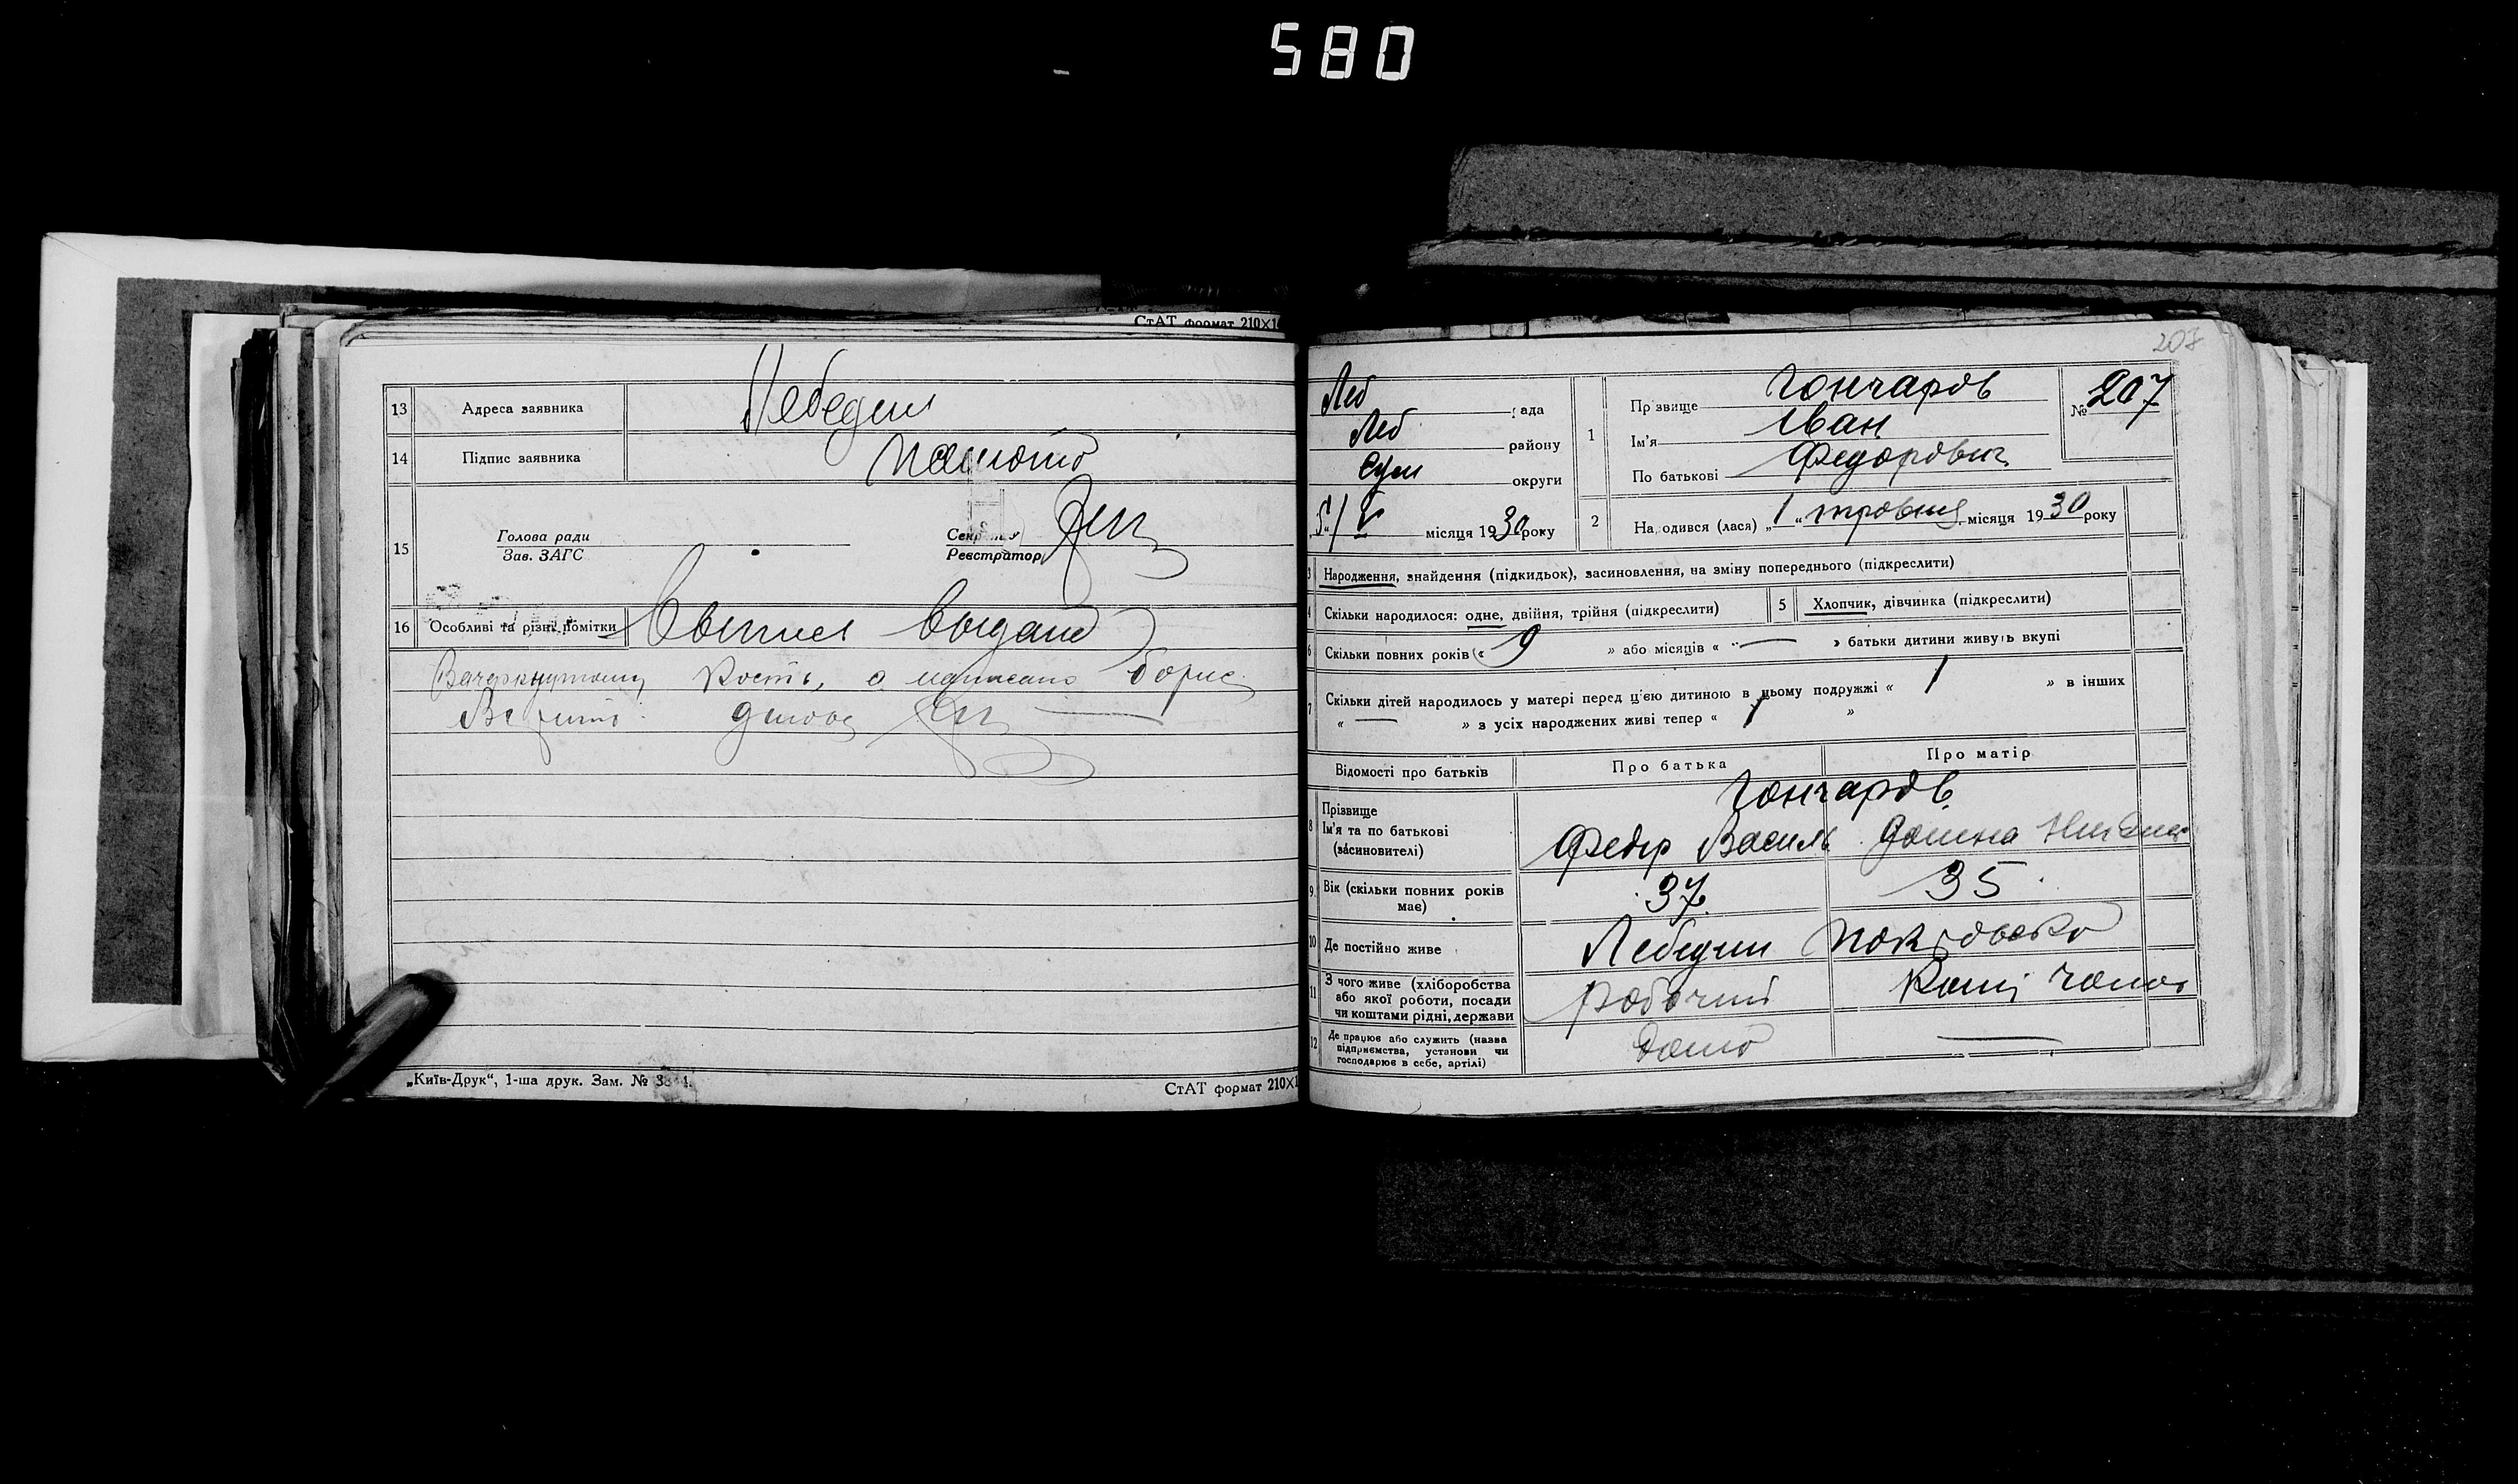 580
СтАТ формат 210×1
13 Адреса заявника Лебедин
14 Підпис заявника
15 Голова ради
Зав. ЗАГС
Реєстратор
16 Особливі та різні помітки
Кость, а написано Борис
„Київ-Друк“, 1-ша друк. Зам. №
СтАТ формат 210×1
207
Леб рада
Леб району
Сум округи
5/V місяця 1930 року
1 Прізвище Гончаров
Ім'я Іван
По батькові Федорович
№ 207
2 Народився (лася) „1“ травня місяця 1930 року
3 Народження, знайдення (підкидьок), засиновлення, на зміну попереднього (підкреслити)
4 Скільки народилося: одне, двійня, трійня (підкреслити)
5 Хлопчик, дівчинка (підкреслити)
6 Скільки повних років « 9 » або місяців « — » батьки дитини живуть вкупі
7 Скільки дітей народилось у матері перед ц'єю дитиною в цьому подружжі « 1 » в інших
« — » з усіх народжених живі тепер « 1 »
Відомості про батьків Про батька Про матір
8 Прізвище
Ім'я та по батькові
(засиновителі)
Гончаров
Федір Василь
9 Вік (скільки повних років
має)
37 35
10 Де постійно живе Лебедин
11 З чого живе (хліборобства
або якої роботи, посади
чи коштами рідні, держави
Робочий
12 Де працює або служить (назва
підприємства, установи чи
господарює в себе, артілі)
—